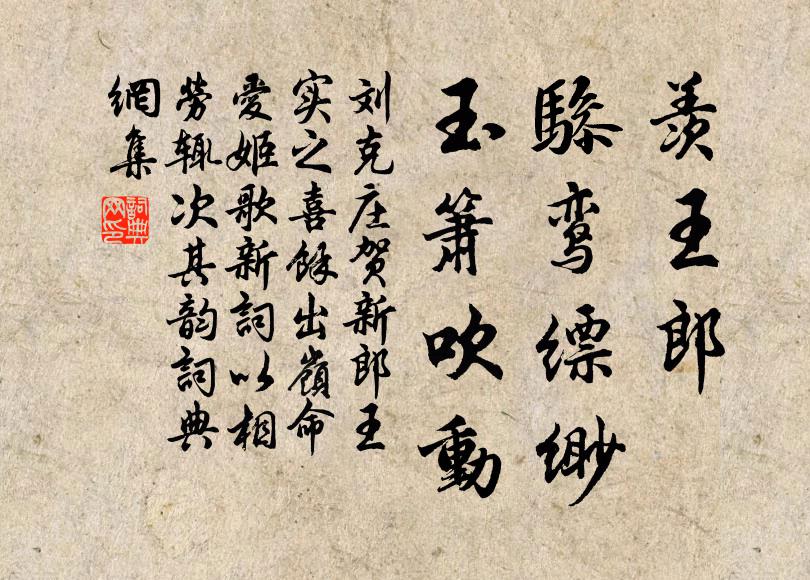 羡王郎
骖鸾缥缈
玉箫吹動
刘克庄贺新郎王
实之喜餘出嶺命
愛姬歌新詞以相
勞辄次其韵詞典
網集
詞典
网印